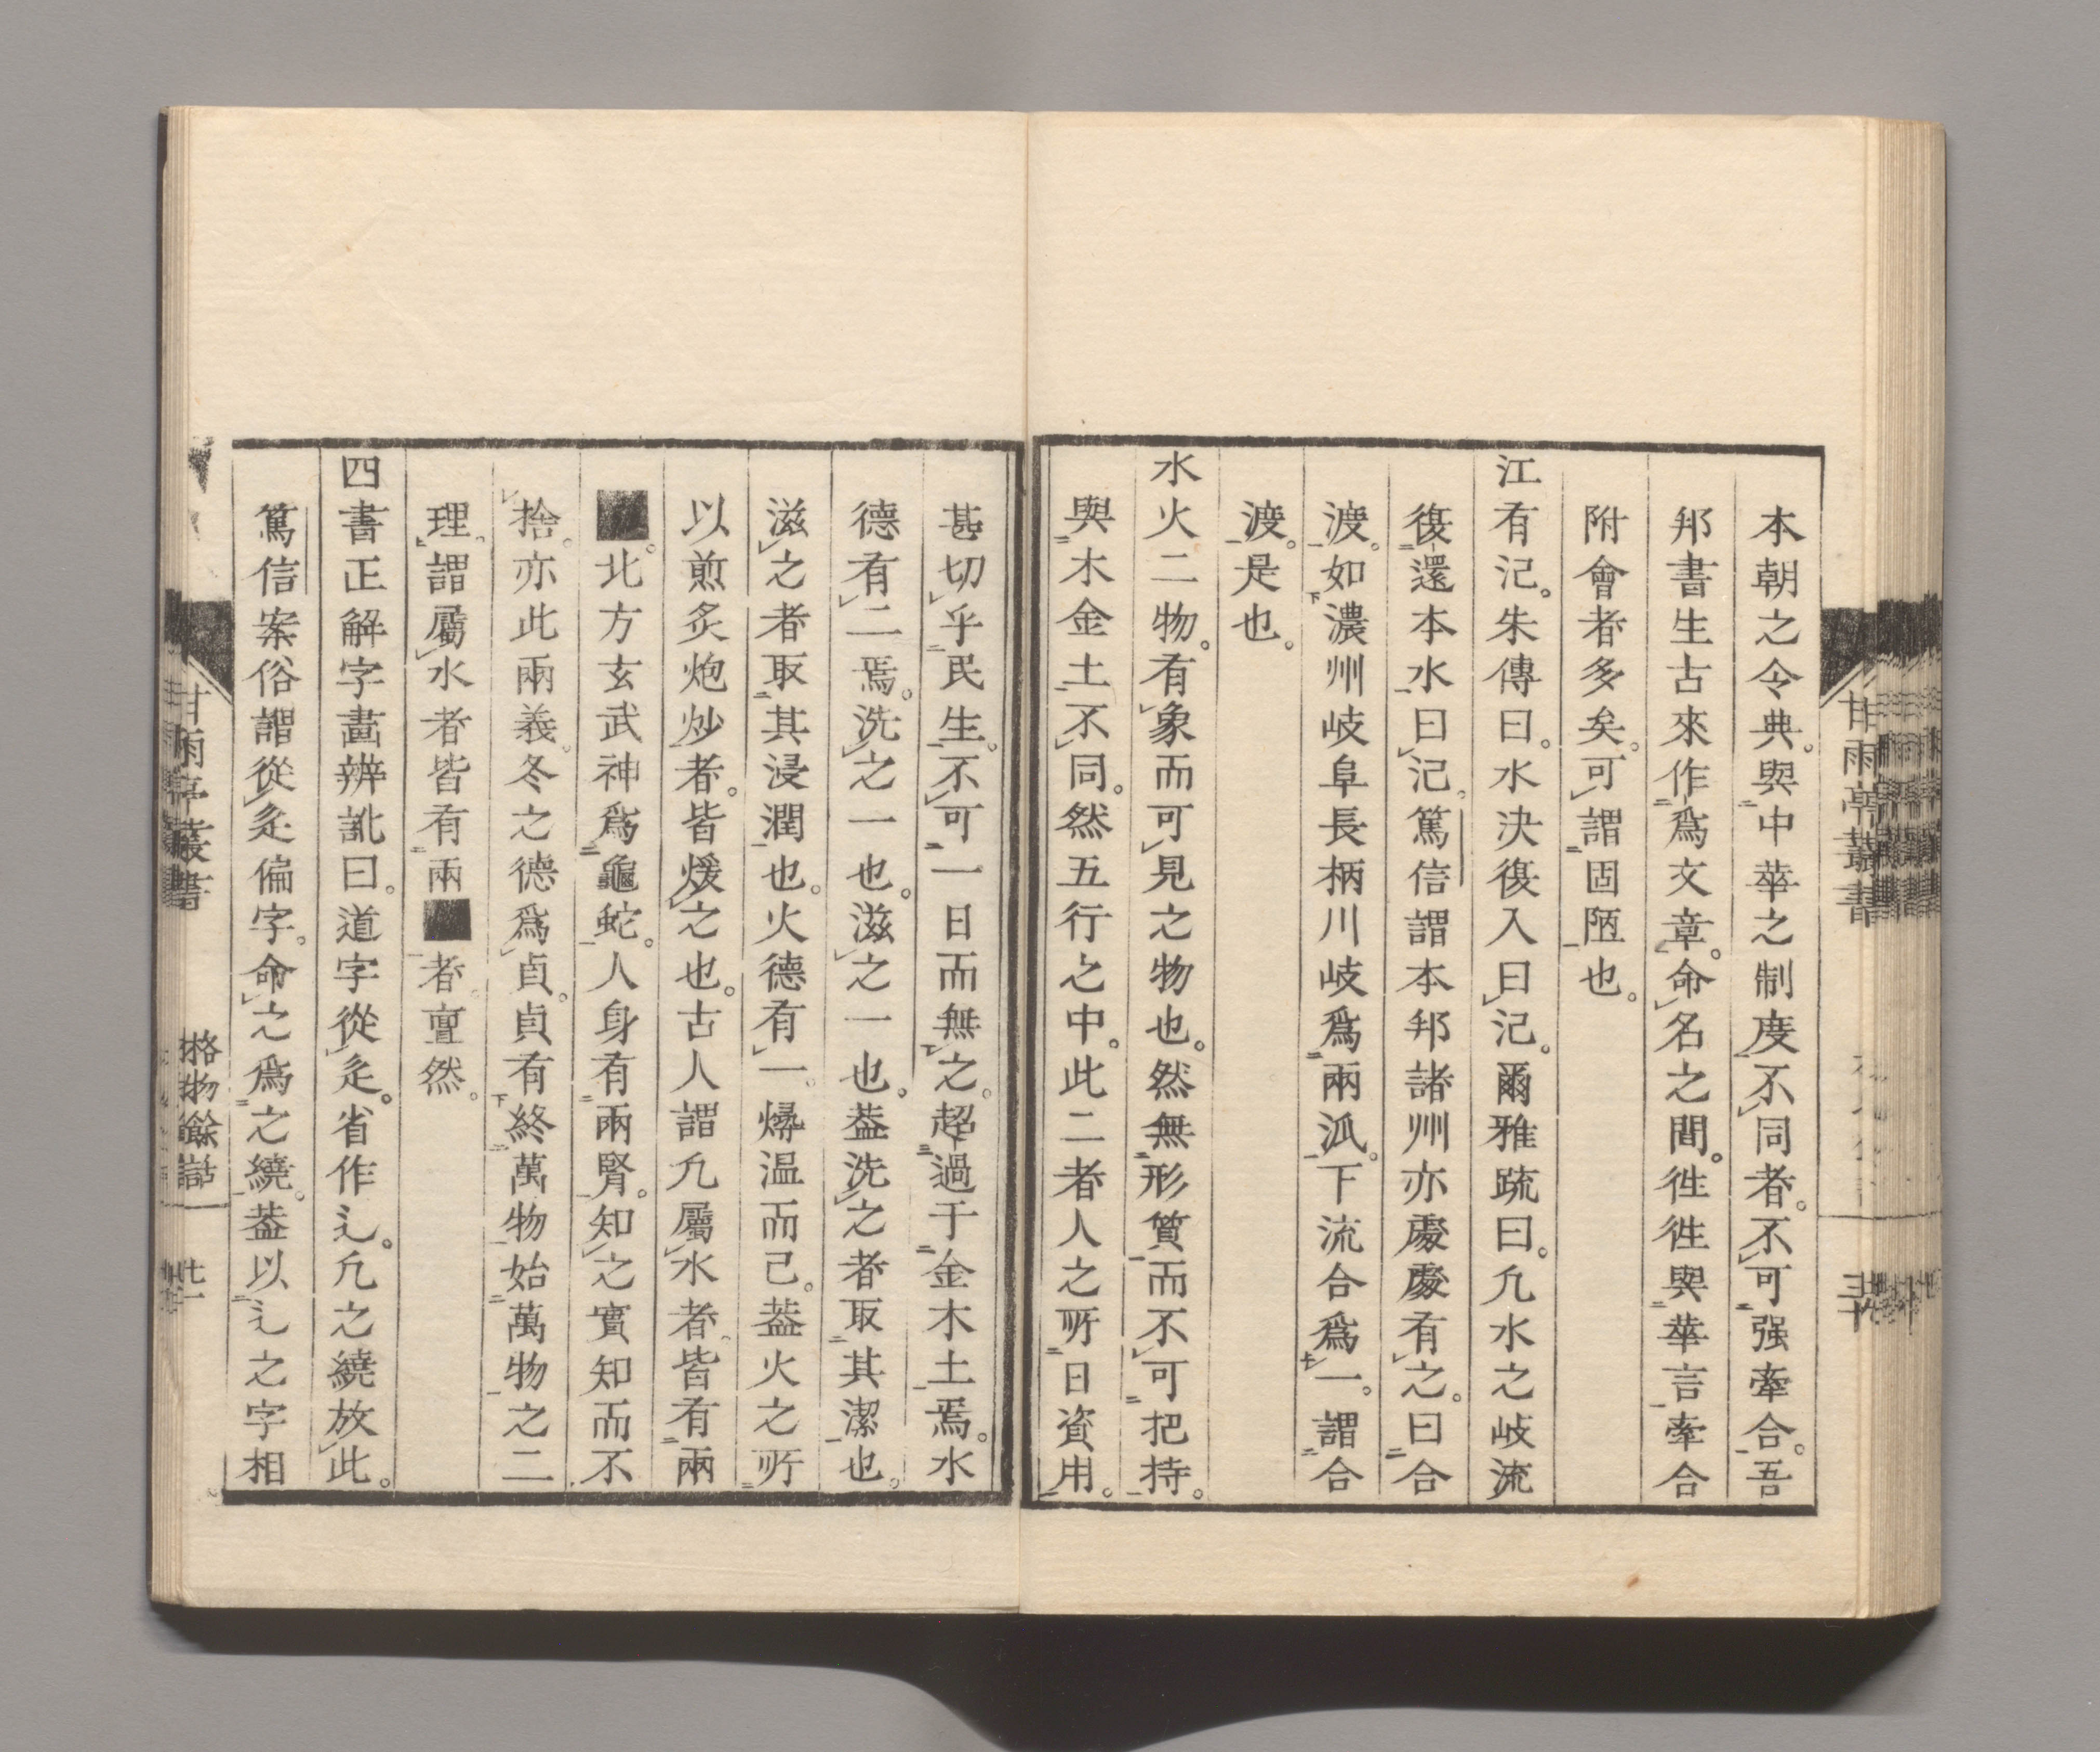 本朝之令典。與中華之制度不同者。不可强牽合。吾
邦書生古來作爲文章。命名之間。徃徃與華言牽合
附會者多矣。可謂固陋也。
江有汜。朱傳曰。水决復入曰汜。爾雅疏曰。凢水之岐流
復還本水曰汜。篤信謂本邦諸州亦處處有之。曰合
渡。如濃州岐阜長柄川岐爲兩泒。下流合爲一。謂合
渡。是也。
水火二物。有象而可見之物也。然無形質而不可把持。
與木金土不同。然五行之中。此二者人之所日資用。
甚切乎民生。不可一日而無之。超過于金木土焉。水
德有二焉。洗之一也。滋之一也。葢洗之者取其潔也。
滋之者取其浸潤也。火德有一。燖温而已。葢火之所
以煎炙炮炒者。皆煖之也。古人謂凢屬水者。皆有兩
■。北方玄武神爲龜蛇。人身有兩腎。知之實知而不
捨。亦此兩義。冬之德爲貞。貞有終萬物始萬物之二
理。謂屬水者皆有兩■者。亶然。
四書正解字畫辨訛曰。道字從辵。省作辶。凢之繞放此。
篤信案俗謂從辵偏字。命之爲之繞。葢以辶之字相
甘雨亭叢書
格物餘話
甘雨亭叢書